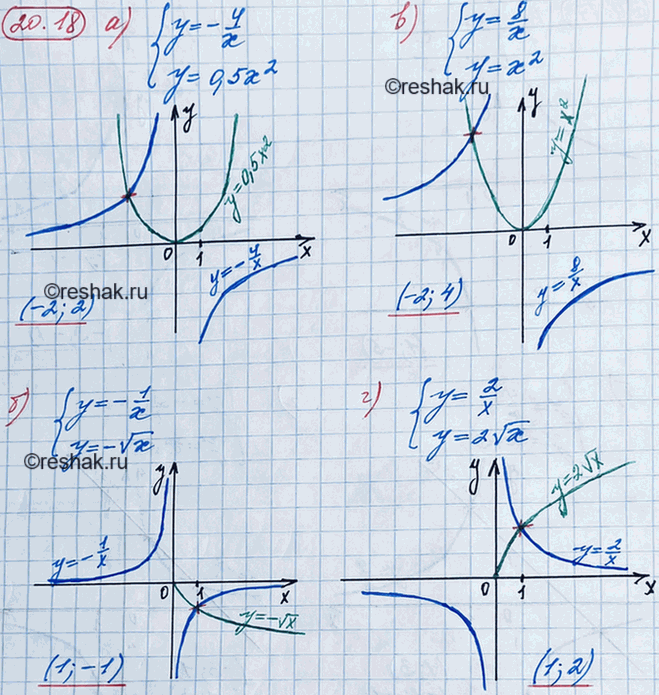 20.18 а) { y = -4/x
y = 0,5x²
y
y=0,5x²
0 1 x
y=-4/x
©reshak.ru
(-2; 2)
в) { y = 8/x
©reshak.ru
y = x²
y
y=x²
0 1 x
y=8/x
(-2; 4)
б) { y = -1/x
y = -√x
©reshak.ru
y
y=-1/x
0 1 x
y=-√x
(1; -1)
г) { y = 2/x
y = 2√x
y
y=2√x
y=2/x
0 1 x
(1; 2)